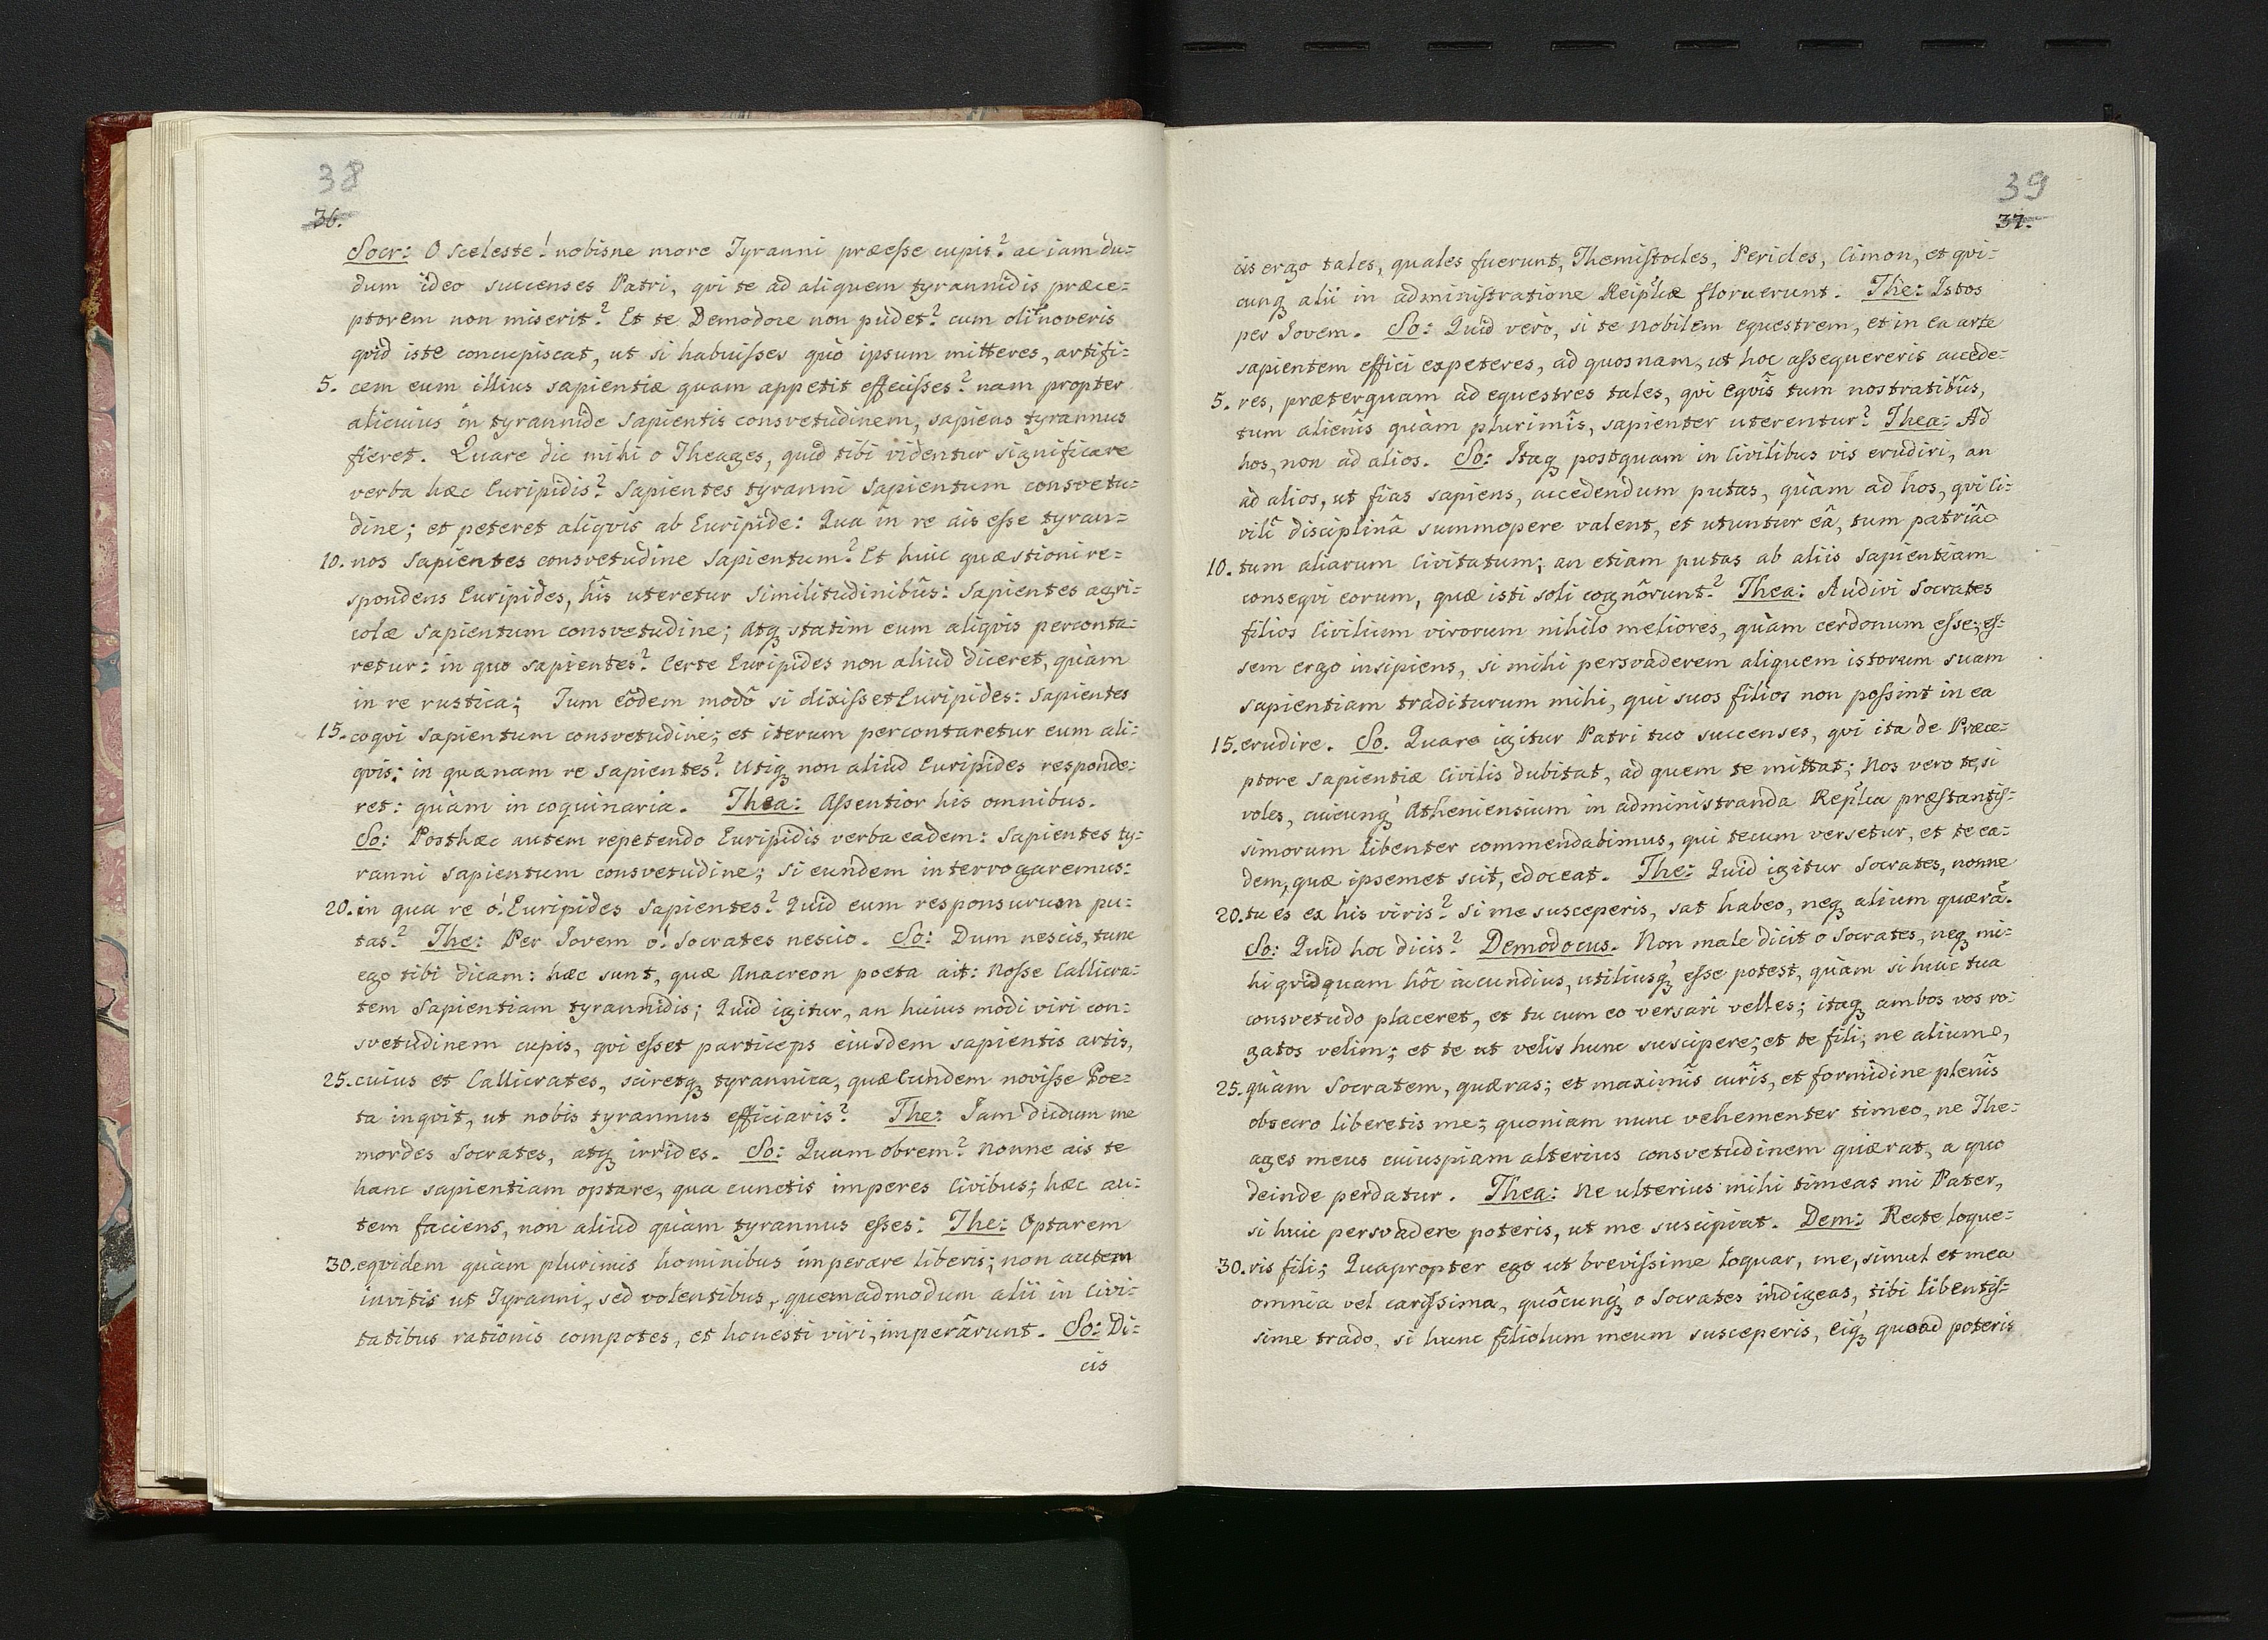 38
36.
Socr: O Sceleste! nobisne more Tyranni præesse cupis? ac iam du=
dum ideo succenses Patri, qvi te ad aliquem tyrannidis præce=
ptorem non miserit? Et te Demodoce non pudet? cum olim noveris
qvid iste concupiscat, ut si habuisses quò ipsum mitteres, artifi=
5. cem eum illius sapientiæ quam appetit effecisses? nam propter
alicuius in tyrannide Sapientis consvetudinem, sapiens tyrannus
fieret. Quare dic mihi o Theages, quid tibi videntur significare
verba hæc Euripidis? Sapientes tyranni Sapientum consvetu=
dine; et peteret aliqvis ab Euripide: Qua in re ais esse tyran=
10. nos Sapientes consvetudine Sapientum? Et huic quæstioni re=
spondens Euripides, his uteretur Similitudinibûs: Sapientes agri=
colæ Sapientum consvetudine; Atq₃ statim eum aliqvis perconta=
retur: in quo sapientes? Certe Euripides non aliud diceret, quàm
in re rustica; Tum eôdem modô si dixisset Euripides: Sapientes
15. coqvi Sapientum consvetudine; et iterum percontaretur eum ali=
qvis: in quanam re Sapientes? Utiq₃ non aliud Euripides responde=
ret: quàm in coquinaria. Thea: Assentior his omnibus.
So: Posthæc autem repetendo Euripidis verba eadem: Sapientes ty=
ranni Sapientum consvetudine; Si eundem interrogaremus:
20. in qua re o! Euripides Sapientes? Quid eum responsurum pu=
tas? The: Per Jovem o! Socrates nescio. So: Dum nescis, tunc
ego tibi dicam: hæc sunt, quæ Anacreon poeta ait: Nosse Callicra=
tem Sapientiam tyrannidis; Quid igitur, an huius modi viri con=
svetudinem cupis, qvi esset particeps eiusdem sapientis artis,
25. cuius et Callicrates, sciretq₃ tyrannica, quæ Eundem novisse Poe=
ta inqvit, ut nobis tyrannus efficiaris? The: Jam dudum me
mordes Socrates, atq₃ irrides. So: Quam obrem? Nonne ais te
hanc sapientiam optare, qua cunctis imperes Civibus; hæc au=
tem faciens, non aliud quàm tyrannus esses: The: Optarem
30. eqvidem quàm plurimis hominibus imperare liberis; non autem
invitis ut Tyranni, sed volentibus, quemadmodum alii in Civi=
tatibus rationis compotes, et honesti viri, imperârunt. So: Di=
cis
39
37.
cis ergo tales, quales fuerunt, Themistocles, Pericles, Cimon, et qvi=
cunq₃ alii in administratione Reip'licæ floruerunt. The: Istos
per Jovem. So: Quid verò, si te Nobilem equestrem, et in ea arte
sapientem effici expeteres, ad quosnam, ut hoc assequereris accede=
5. res, præterquam ad equestres tales, qvi Eqvîs tum nostratibûs,
tum alienîs quàm plurimîs, sapienter uterentur? Thea: Ad
hos, non ad alios. So: Itaq₃ postquam in Civilibus vis erudiri, an
ad alios, ut fias sapiens, accedendum putas, quàm ad hos, qvi Ci=
vilî disciplinâ summopere valent, et utuntur eâ, tum patriâ
10. tum aliarum Civitatum; an etiam putas ab aliis sapientiam
conseqvi eorum, quæ isti soli cognôrunt? Thea: Audivi Socrates
filios Civilium virorum nihilo meliores, quàm cerdonum esse; es=
sem ergo insipiens, si mihi persvaderem aliquem istorum suam
sapientiam traditurum mihi, qui suos filios non possint in ea
15. erudire. So. Quare igitur Patri tuo succenses, qvi ita de Præce=
ptore Sapientiæ Civilis dubitat, ad quem te mittat; Nos vero te, si
voles, cuicunq₃ Atheniensium in administranda Rep'lica præstantis=
simorum libenter commendabimus, qui tecum versetur, et te ea=
dem, quæ ipsemet scit, edoceat. The: Quid igitur Socrates, nonne
20. tu es ex his viris? Si me susceperis, sat habeo, neq₃ alium quærā.
So: Quid hoc dicis? Demodocus. Non male dicit o Socrates, neq₃ mi=
hi qvidquam hôc iucundius, utiliusq₃ esse potest, quàm si huic tua
consvetudo placeret, et tu cum eo versari velles; itaq₃ ambos vos ro=
gatos velim; et te ut velis hunc suscipere; et te fili, ne alium,
25. quàm Socratem, quæras; et maximîs curîs, et formidine plenîs
obsecro liberetis me; quoniam nunc vehementer timeo, ne The=
ages meus cuiuspiam alterius consvetudinem quærat, a quo
deinde perdatur. Thea: Ne ulterius mihi timeas mi Pater,
si huic persvadere poteris, ut me suscipiat. Dem: Recte loque=
30. ris fili; Quapropter ego ut brevissime loquar, me, simul et mea
omnia vel carissima, quôcunq₃ o Socrates indigeas, tibi libentis=
sime trado, si hunc filiolum meum susceperis, Eiq₃ quoad poteris